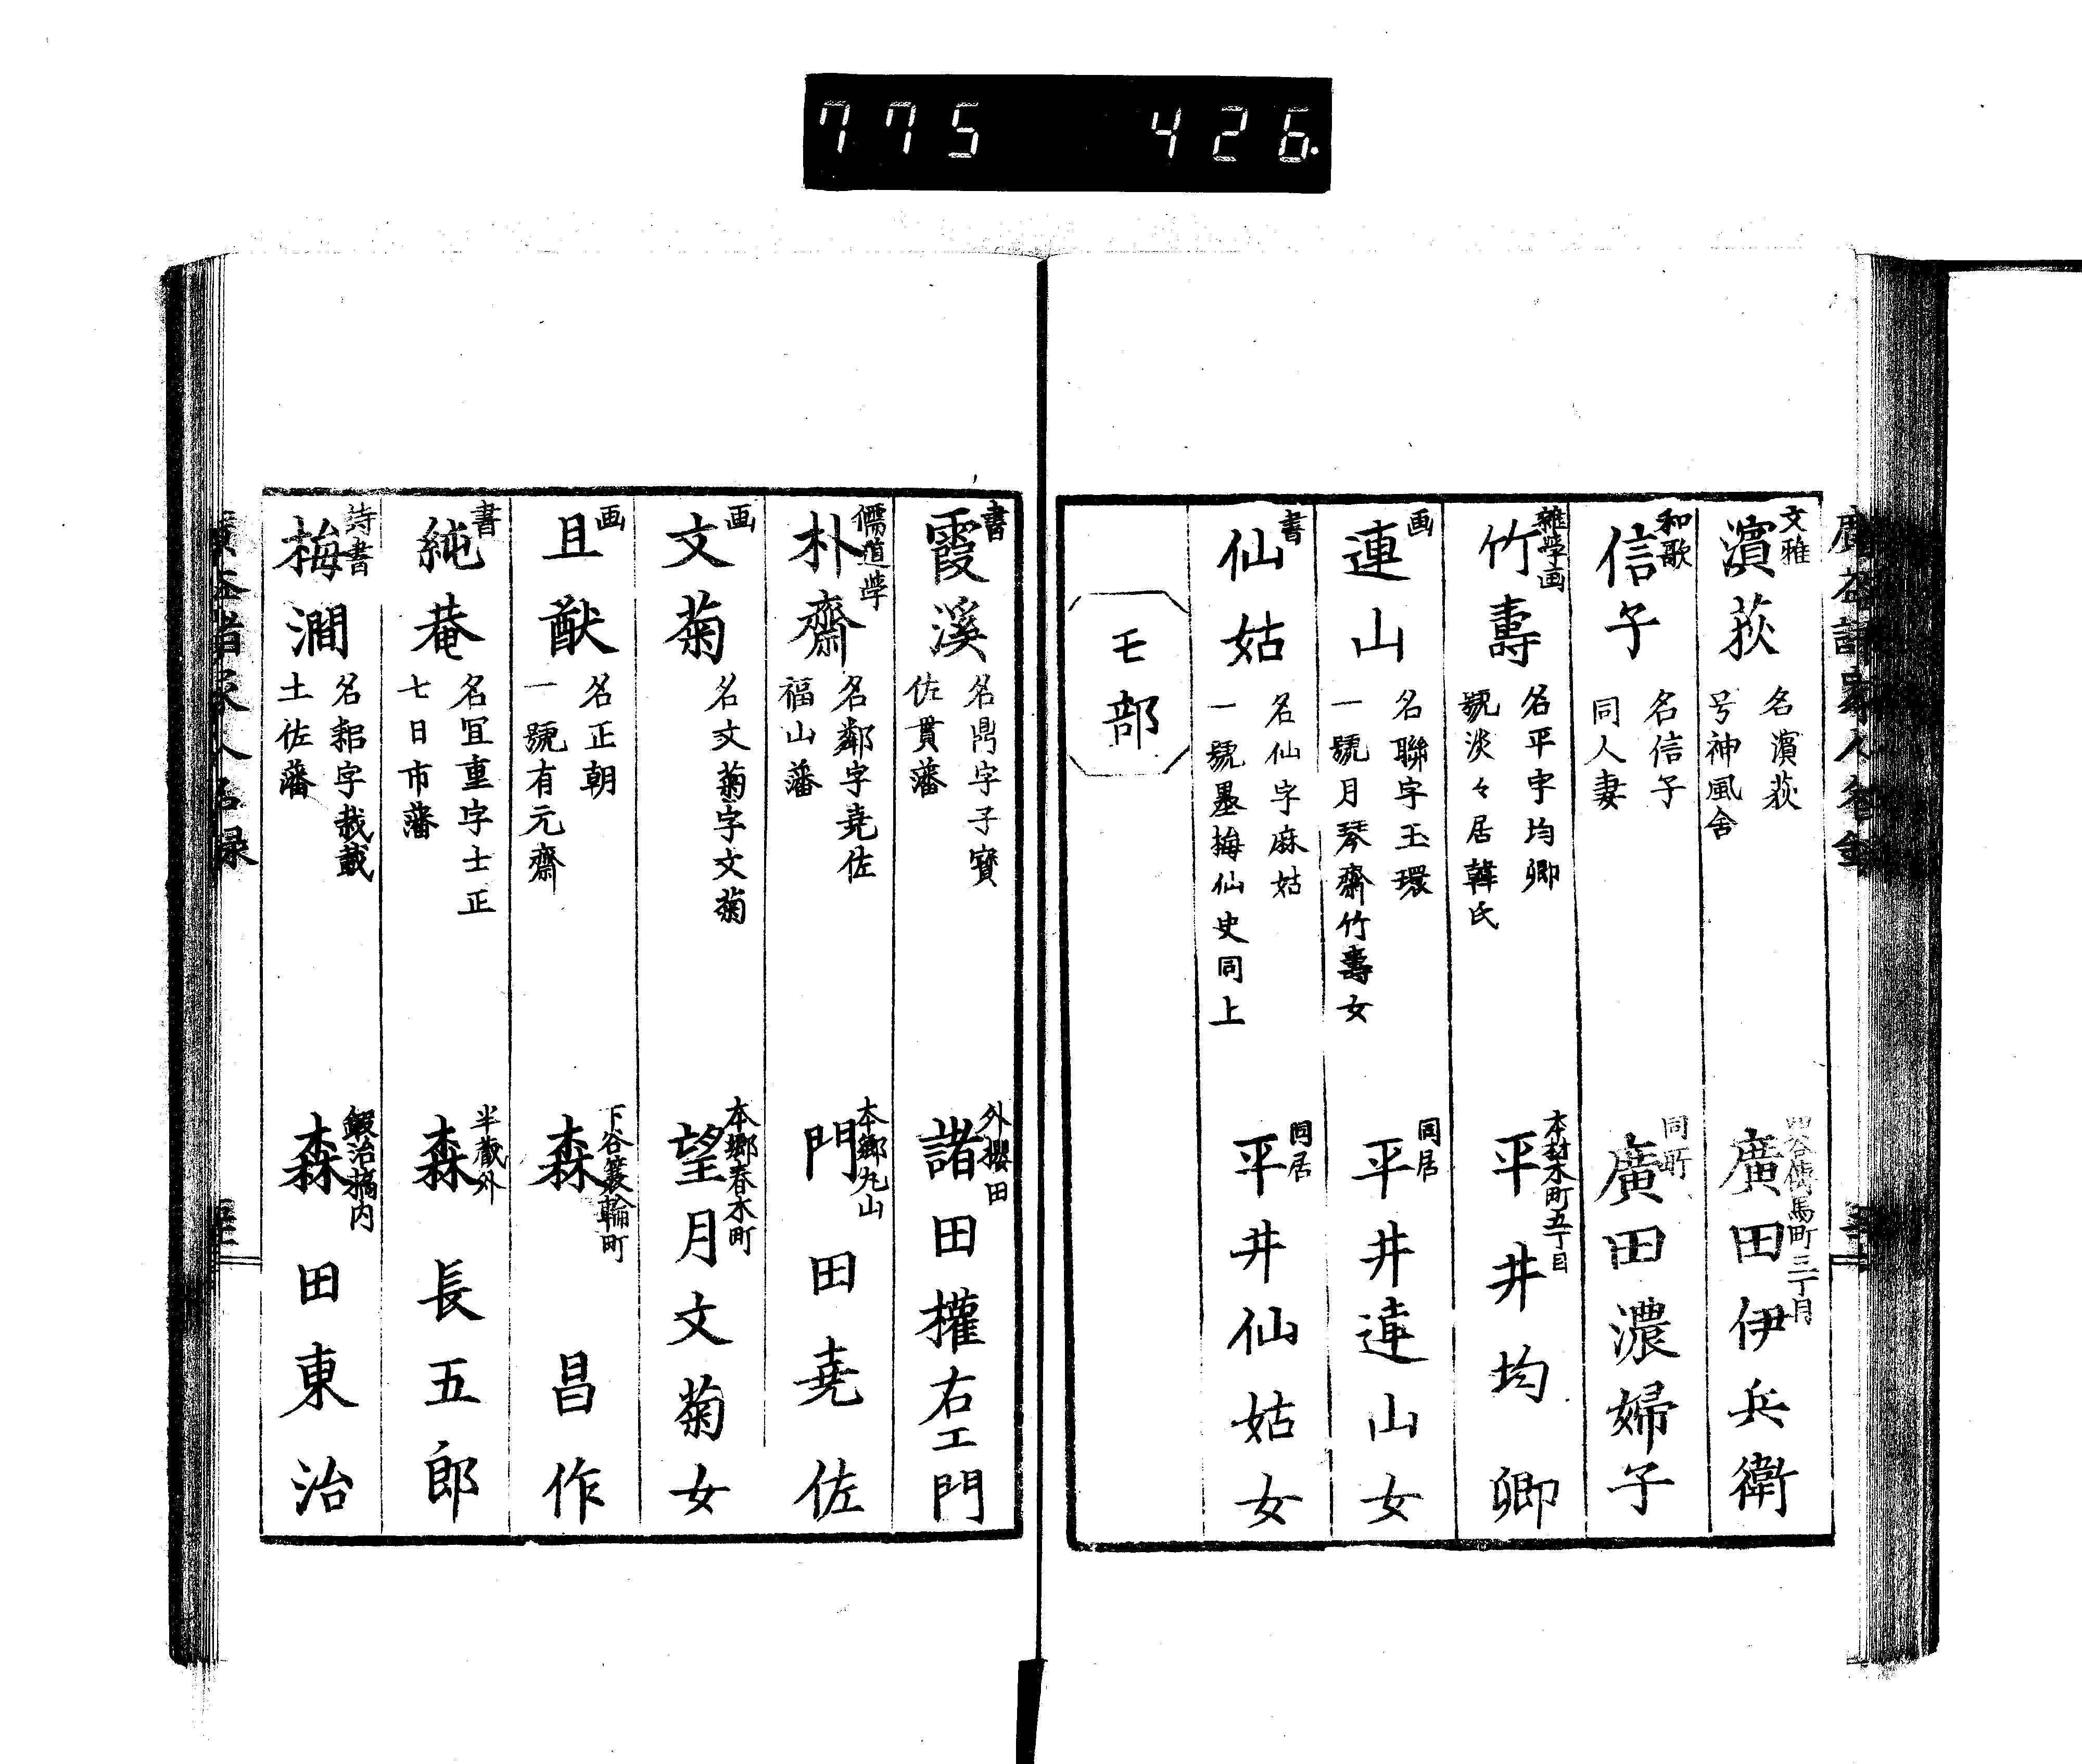 775 426.
文雅
濵荻
名濵荻
号神風舎
四谷傳馬町三丁目
廣田伊兵衛
和歌
信子
名信子
同人妻
同町
廣田濃婦子
雑学画
竹壽
名平字均卿
號淡々居韓氏
本材木町五丁目
平井均卿
画
連山
名聯字玉環
一號月琴齋竹壽女
同居
平井連山女
書
仙姑
名仙字麻姑
一號墨梅仙史同上
同居
平井仙姑女
モ部
書
霞溪
名鼎字子寳
佐貫藩
外櫻田
諸田權右エ門
儒道学
朴齋
名鄰字堯佐
福山藩
本郷丸山
門田堯佐
画
文菊
名文菊字文菊
本郷春木町
望月文菊女
画
且猷
名正朝
一號有元齋
下谷簑輪町
森昌作
書
純菴
名冝重字士正
七日市藩
半蔵外
森長五郎
詩書
梅澗
名 字
土佐藩
鍛冶橋内
森田東治